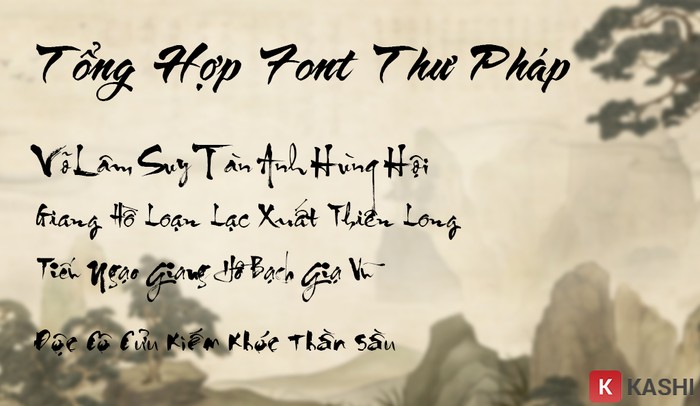 Tổng Hợp Font Thư Pháp
Võ Lâm Suy Tàn Anh Hùng Hội
Giang Hồ Loạn Lạc Xuất Thiên Long
Tiếu Ngạo Giang Hồ Bạch Gia Vũ
Độc Cô Cửu Kiếm Khóc Thần Sầu
K KASHI